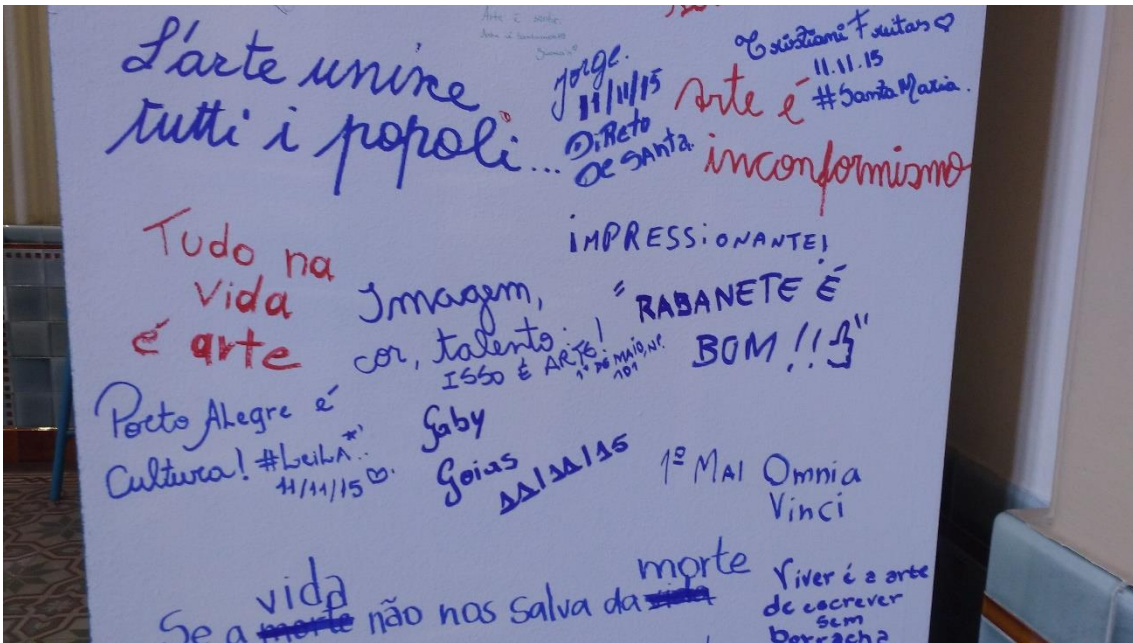 Arte é sentir.
L'arte unisce
tutti i popoli...
Jorge.
11/11/15
DiReto
De SAnta.
Cristiani Freitas ♡
11.11.15
#Santa Maria.
Arte é
inconformismo
Tudo na
vida
é arte
iMPRESSiONANTE!
Imagem,
cor, talento...!
ISSO É ARTE!
1º DE MAIO, Nº.
101
"RABANETE É
BOM!!"
Porto Alegre é
Cultura! #LeiLA
11/11/15 ♡.
Gaby
Goias
11/11/15
1º MAI Omnia
Vinci
vida morte
Se a morte não nos salva da vida
Viver é a arte
de escrever
sem
borracha